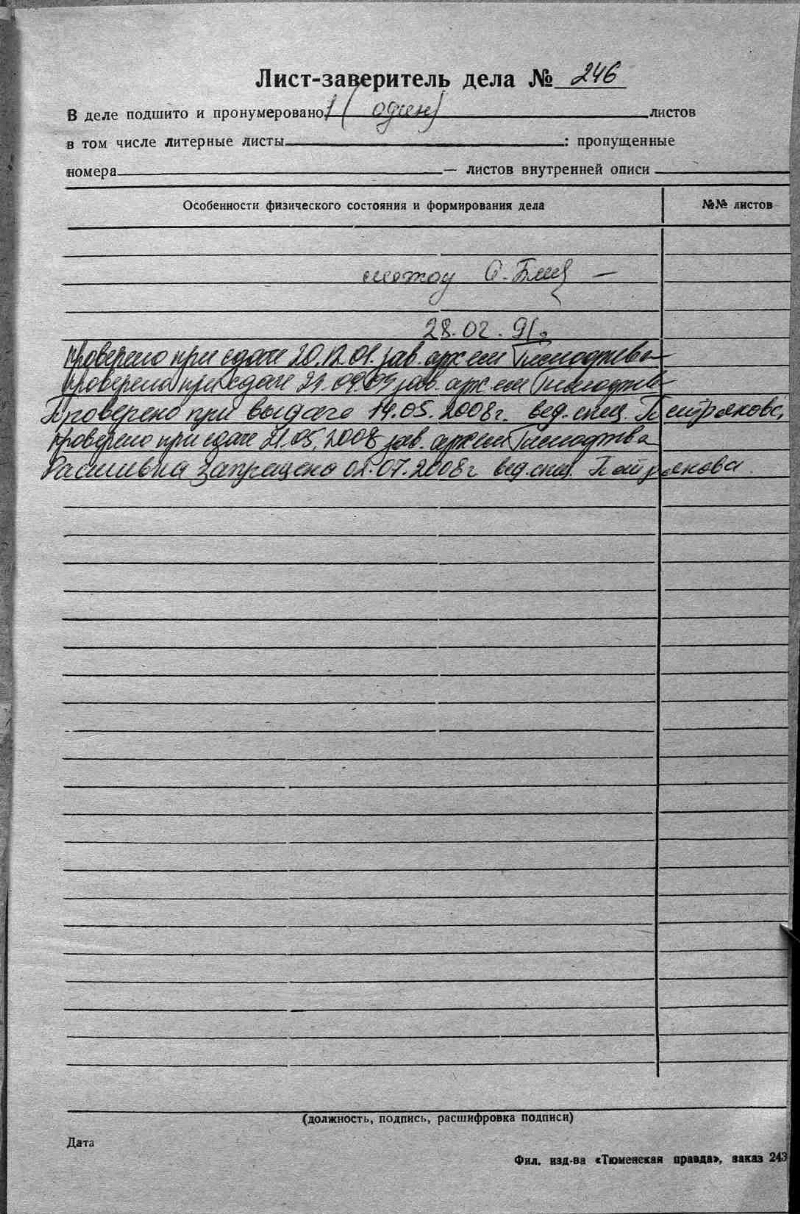 Лист-заверитель дела № 246
В деле подшито и пронумеровано 1 (один) листов
в том числе литерные листы : пропущенные
номера — листов внутренней описи
Особенности физического состояния и формирования дела №№ листов
28.02.91г.
Проверено при сдаче 20.12.01 зав. арх-ем
Проверено при сдаче зав. арх-ем
Проверено при выдаче 14.05.2008г. вед. спец. Петрякова
Проверено при сдаче 21.05.2008 зав. арх-ем
Расшивка запрещено 01.07.2008г вед. спец. Петрякова.
(должность, подпись, расшифровка подписи)
Дата
Фил. изд-ва «Тюменская правда», заказ 243